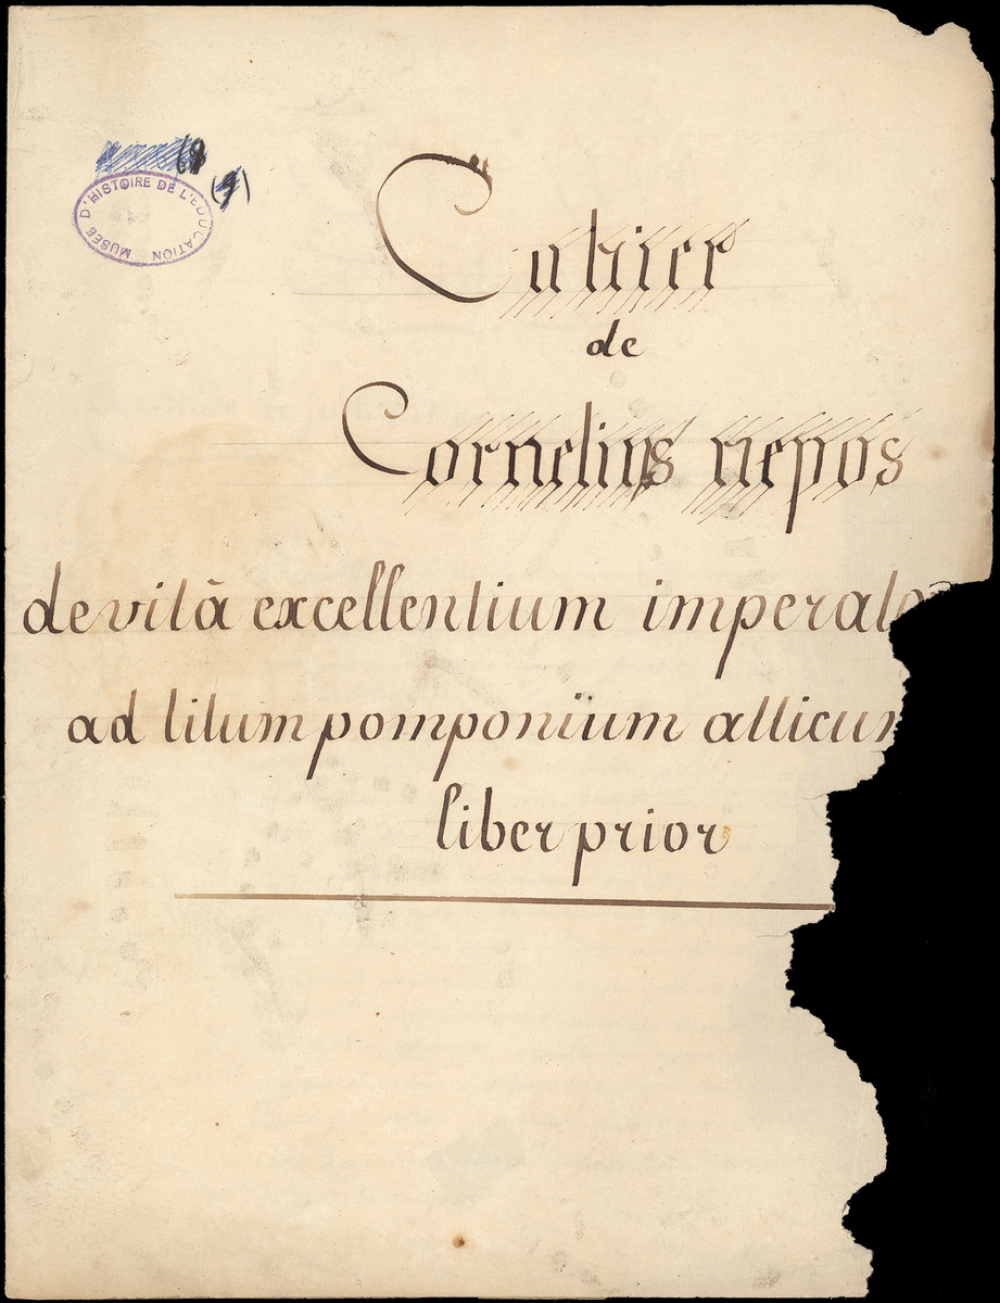 (9
(9)
MUSÉE D'HISTOIRE DE L'EDUCATION
Cahier
de
Cornelius nepos
de vitâ excellentium imperato
ad titum pomponïum atticum
liber prior